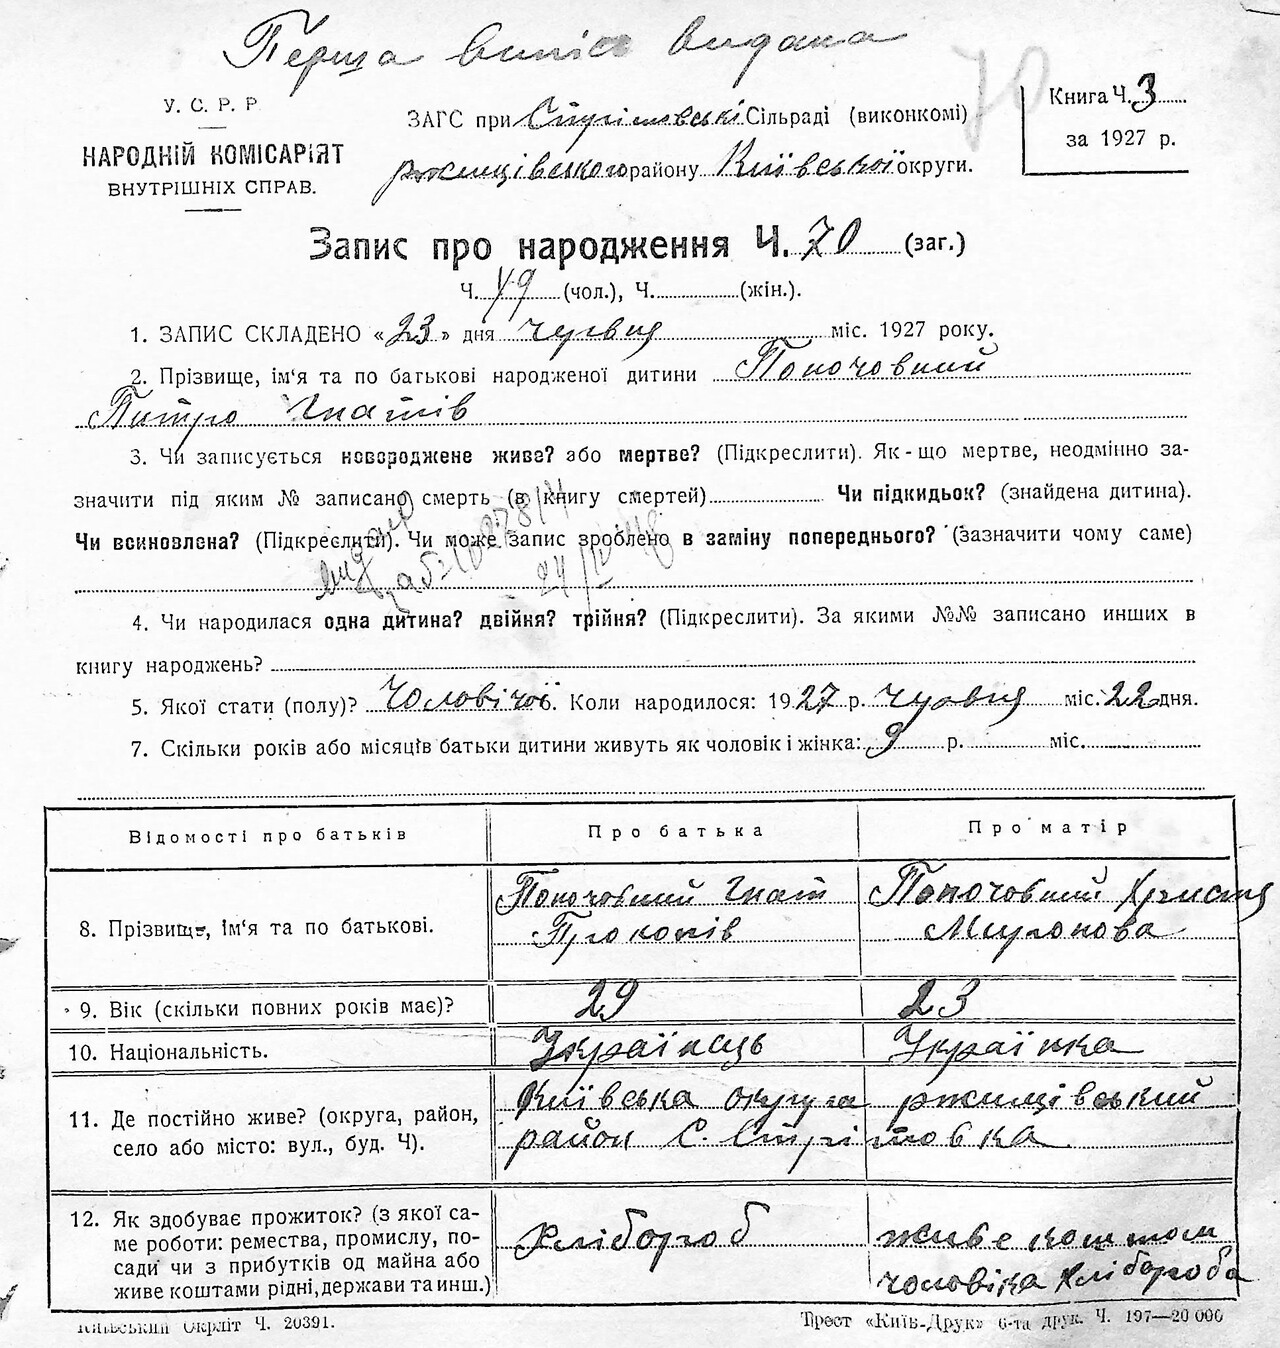 Перша випись видана
70
У. С. Р. Р
НАРОДНІЙ КОМІСАРІЯТ
ВНУТРІШНІХ СПРАВ.
ЗАГС при Стрітовській Сільраді (виконкомі)
ржищівського району Київської округи.
Книга Ч. 3
за 1927 р.
Запис про народження Ч. 70 (заг.)
Ч. 49 (чол.), Ч. (жін.).
1. ЗАПИС СКЛАДЕНО «23» дня червня міс. 1927 року.
2. Прізвище, ім'я та по батькові народженої дитини Попочовний
Питро Гнатів
3. Чи записується новороджене живе? або мертве? (Підкреслити). Як-що мертве, неодмінно за-
значити під яким № записано смерть (в книгу смертей) Чи підкидьок? (знайдена дитина).
Чи всиновлена? (Підкреслити). Чи може запис зроблено в заміну попереднього? (зазначити чому саме)
4. Чи народилася одна дитина? двійня? трійня? (Підкреслити). За якими №№ записано инших в
книгу народжень?
5. Якої стати (полу)? Чоловічої. Коли народилося: 1927 р. Червня міс. 22 дня.
7. Скільки років або місяців батьки дитини живуть як чоловік і жінка: 9 р. міс.
Відомості про батьків Про батька Про матір
8. Прізвище, ім'я та по батькові. Попочовний Гнат Прокопів Попочовний Христя Миронова
9. Вік (скільки повних років має)? 29 23
10. Національність. Українець Українка
11. Де постійно живе? (округа, район, Київська округа ржищівський
село або місто: вул., буд. Ч). район С. Стрітовка
12. Як здобуває прожиток? (з якої са-
ме роботи: ремества, промислу, по- Хлібороб живе коштом
сади чи з прибутків од майна або
живе коштами рідні, держави та инш.) чоловіка хлібороба
Київський Окрліт Ч. 20391. Трест «Київ-Друк» 6-та друк. Ч. 197—20 000